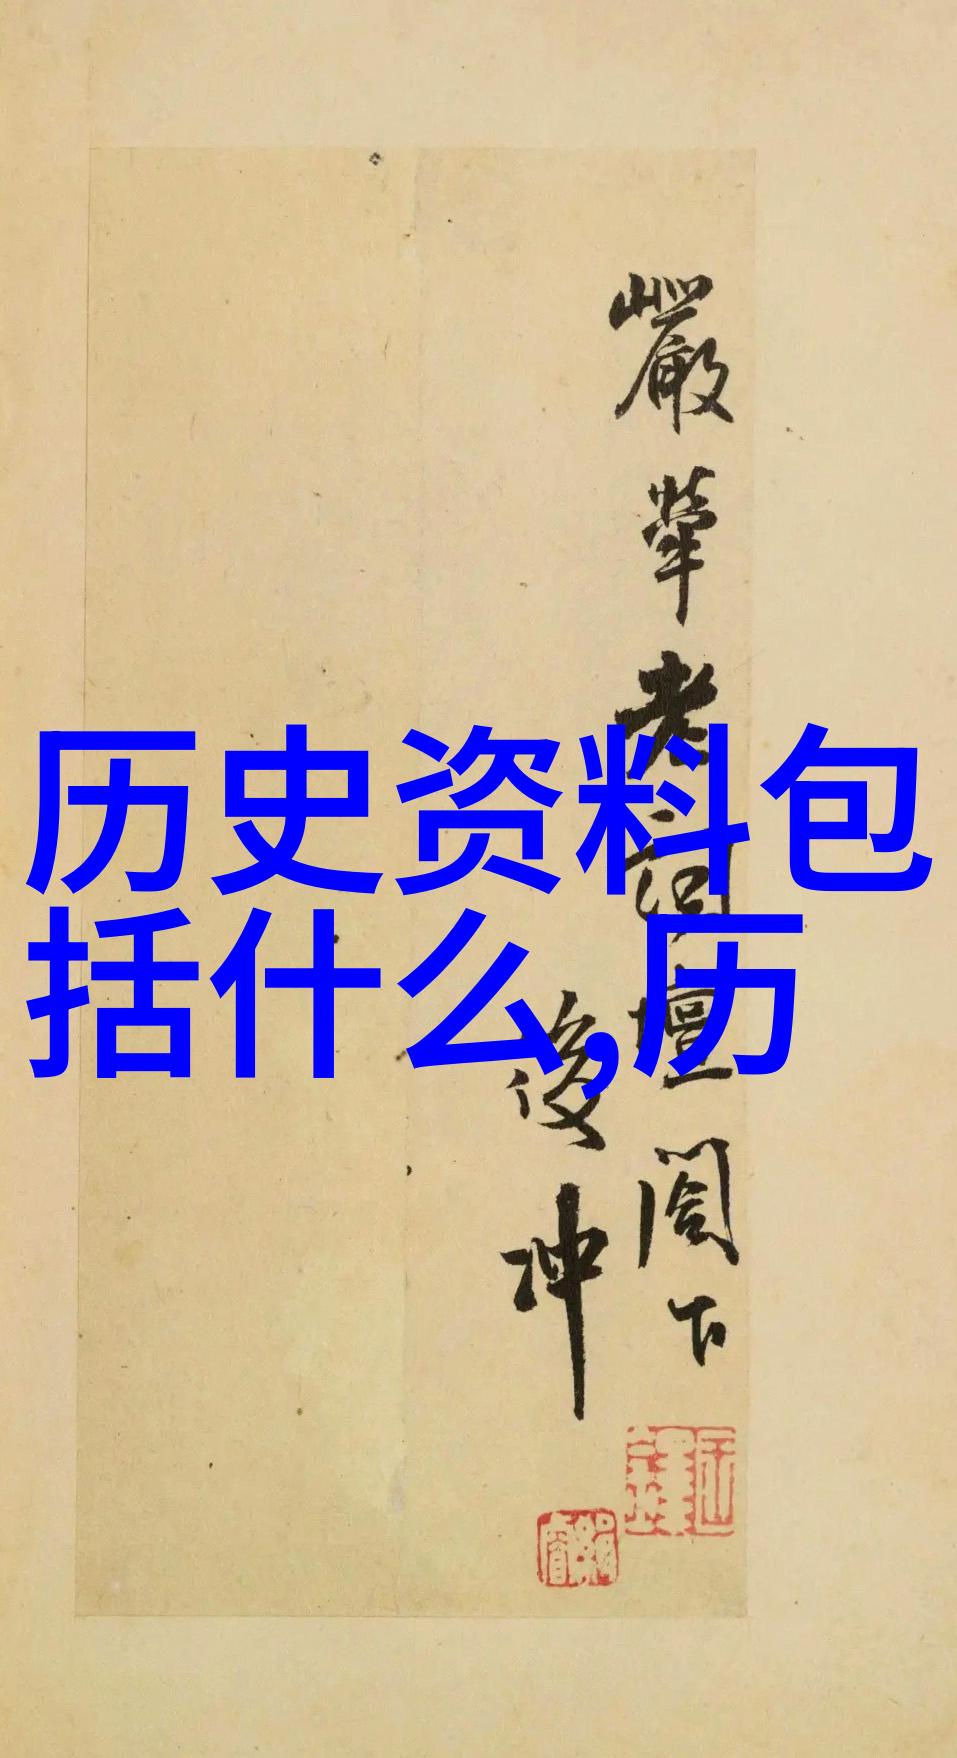 历史资料包
括什么,历
嚴犖老詞壇閣下
後冲